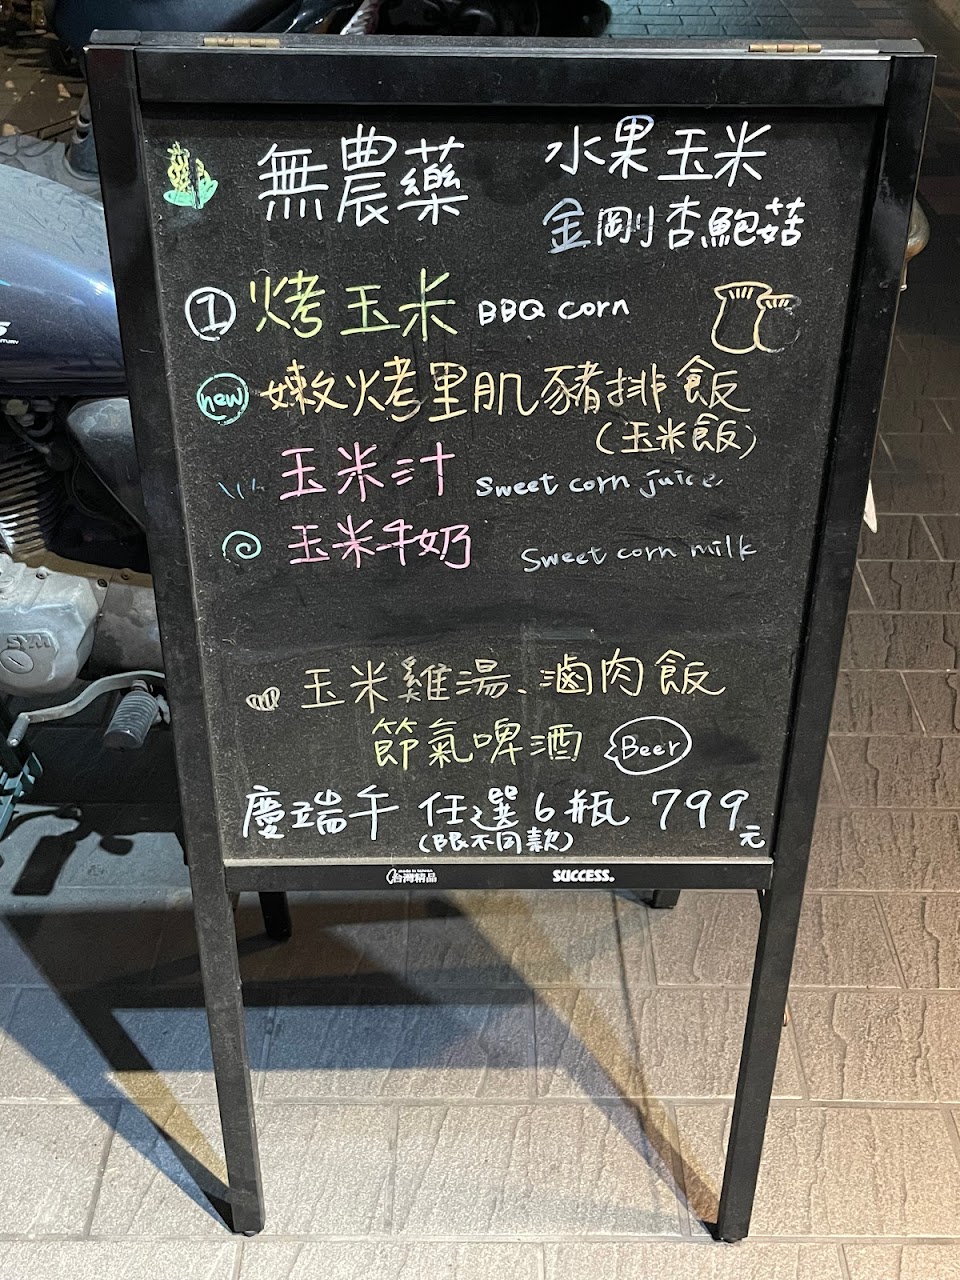 無農藥 水果玉米
金剛杏鮑菇
① 烤玉米 BBQ corn
new 嫩烤里肌豬排飯
(玉米飯)
玉米汁 Sweet corn juice
玉米牛奶 Sweet corn milk
玉米雞湯、滷肉飯
節氣啤酒 Beer
慶端午 任選6瓶 799元
(限不同款)
made in taiwan
台灣精品 SUCCESS.
SYM